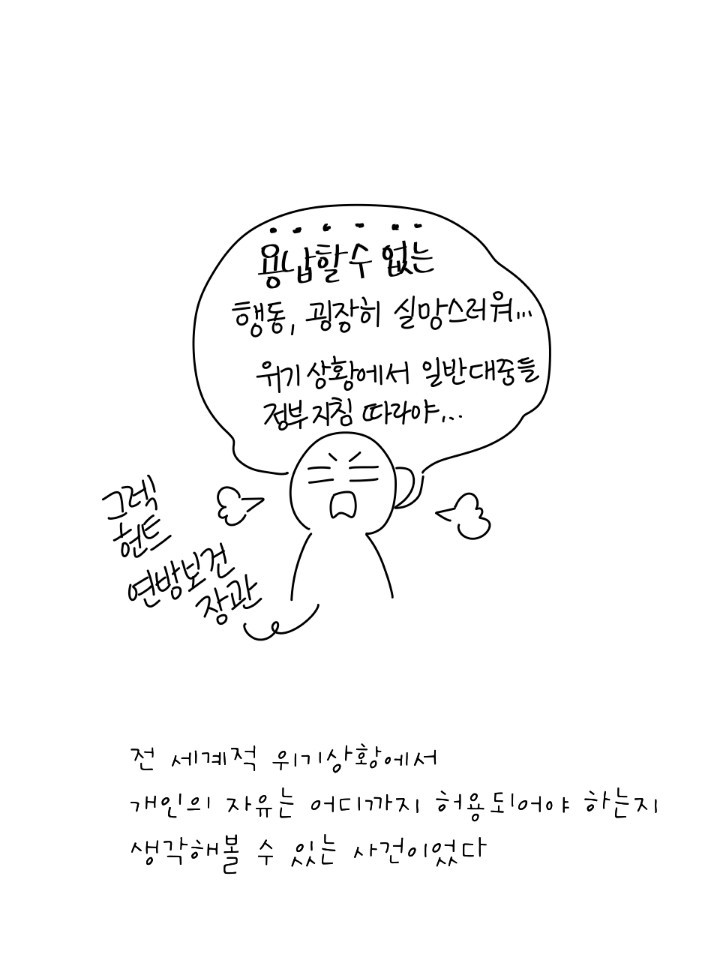 용납할 수 없는
행동, 굉장히 실망스러워...
위기상황에서 일반대중들
정부지침 따라야...
그렉
헌트
연방보건
장관
전 세계적 위기상황에서
개인의 자유는 어디까지 허용되어야 하는지
생각해볼 수 있는 사건이었다